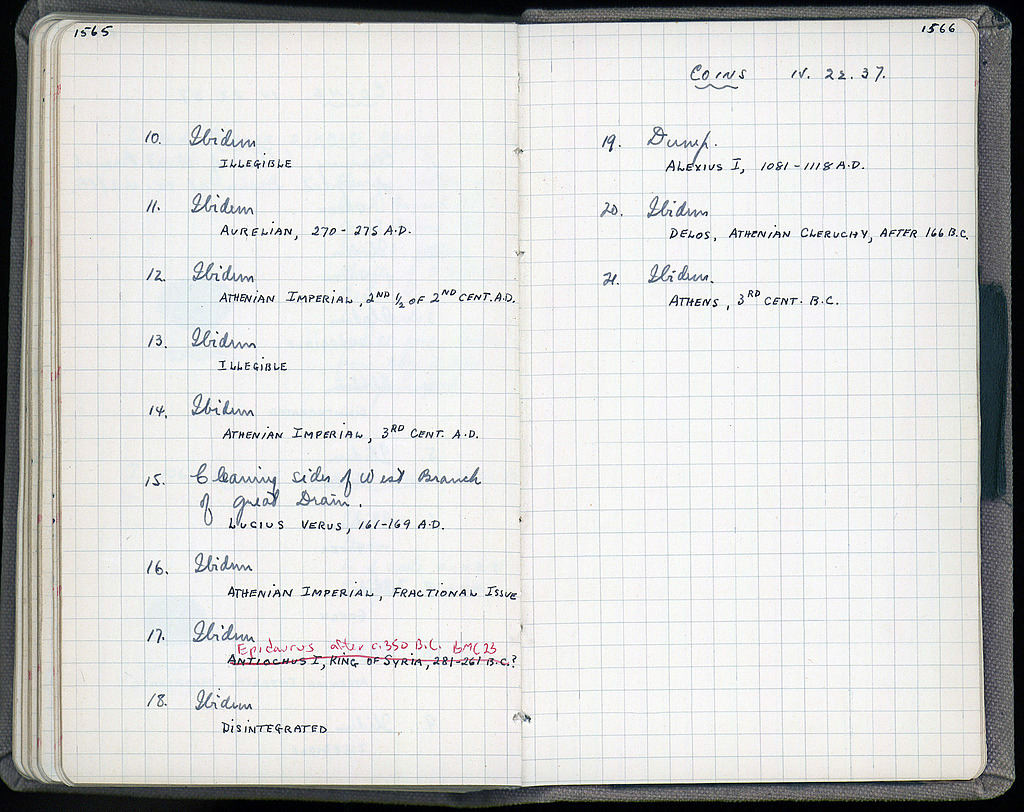 1565
10. Ibidem
ILLEGIBLE
11. Ibidem
AURELIAN, 270-275 A.D.
12. Ibidem
ATHENIAN IMPERIAL, 2ND ½ OF 2ND CENT. A.D.
13. Ibidem
ILLEGIBLE
14. Ibidem
ATHENIAN IMPERIAL, 3RD CENT. A.D.
15. Cleaning sides of West Branch
of great Drain.
LUCIUS VERUS, 161-169 A.D.
16. Ibidem
ATHENIAN IMPERIAL, FRACTIONAL ISSUE
17. Ibidem
Epidaurus after c.350 B.C. BMC 23
ANTIOCHUS I, KING OF SYRIA, 281-261 B.C.?
18. Ibidem
DISINTEGRATED
1566
COINS IV. 22. 37.
19. Dump.
ALEXIUS I, 1081-1118 A.D.
20. Ibidem
DELOS, ATHENIAN CLERUCHY, AFTER 166 B.C.
21. Ibidem.
ATHENS, 3RD CENT. B.C.